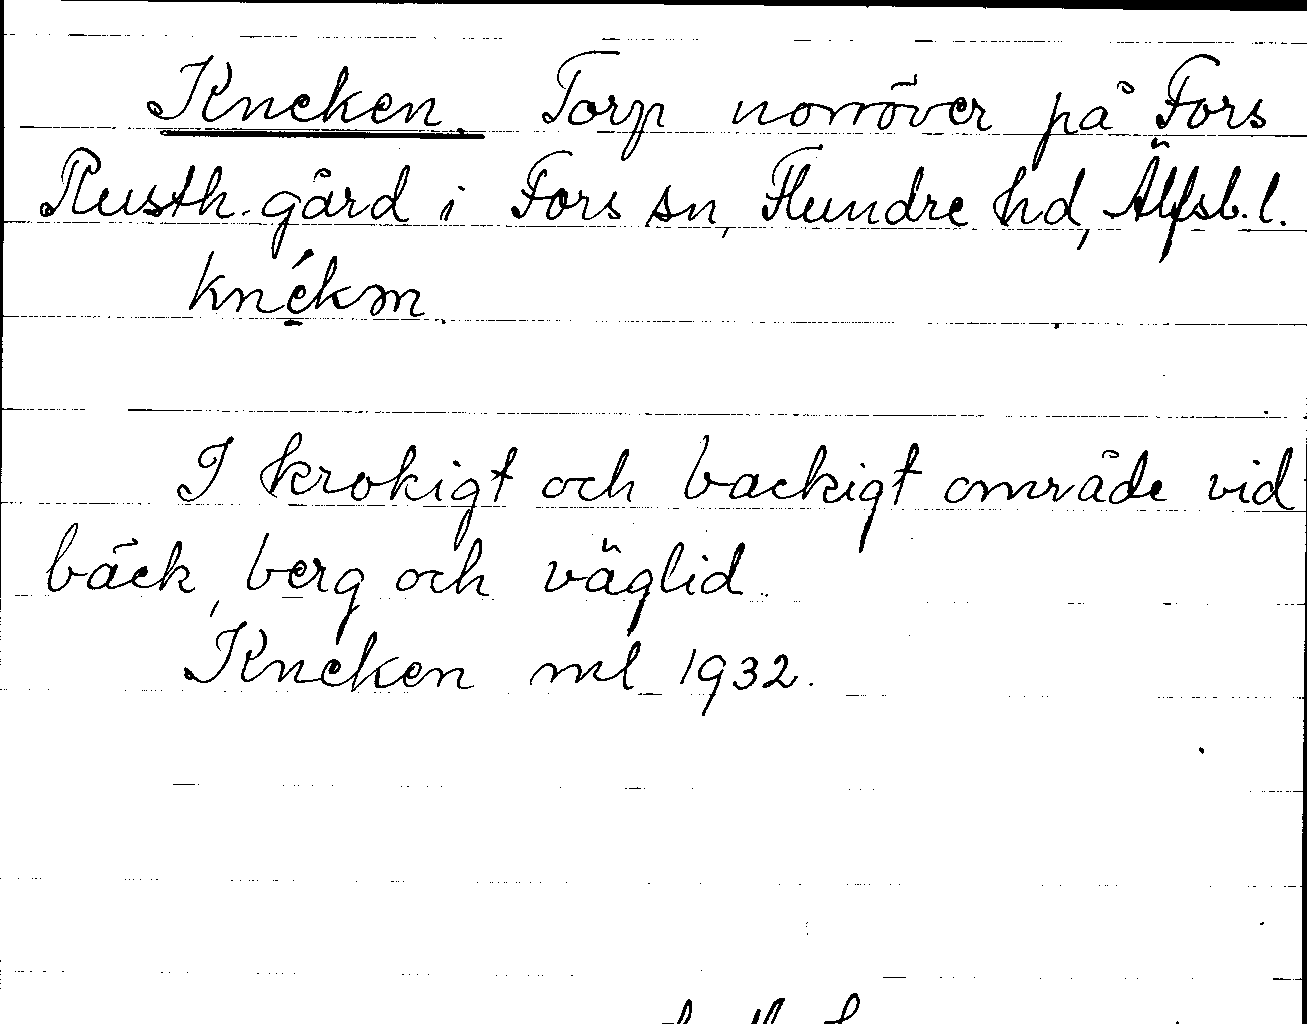 Kneken. Torp norröver på Fors
Rusth. gård i Fors sn, Flundre hd, Älfsb. l.
I krokigt och backigt område vid
bäck, berg och väglid.
Kneken ml 1932.